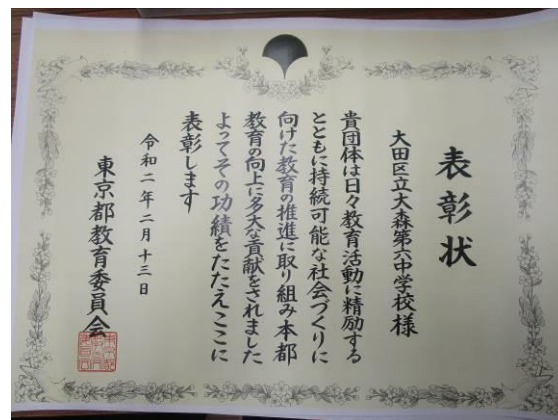 表彰状
大田区立大森第六中学校様
貴団体は日々教育活動に精励する
とともに持続可能な社会づくりに
向けた教育の推進に取り組み本都
教育の向上に多大な貢献をされました
よってその功績をたたえここに
表彰します
令和二年二月十三日
東京都教育委員会